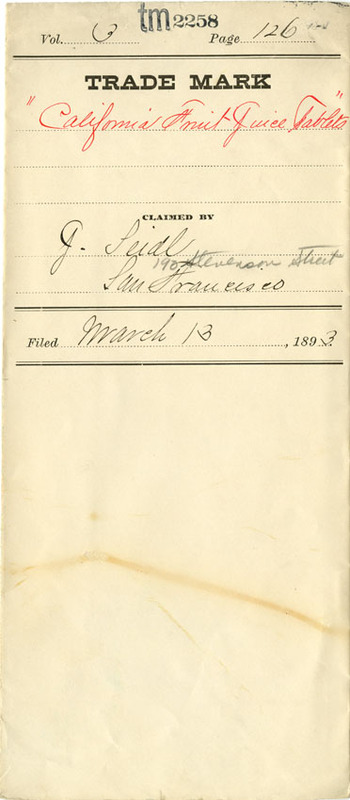 tm 2258
Vol. 6 Page 126
TRADE MARK
"California Fruit Juice Tablets"
CLAIMED BY
J. Seidl
Stevenson Street
San Francisco
Filed March 13, 1893.